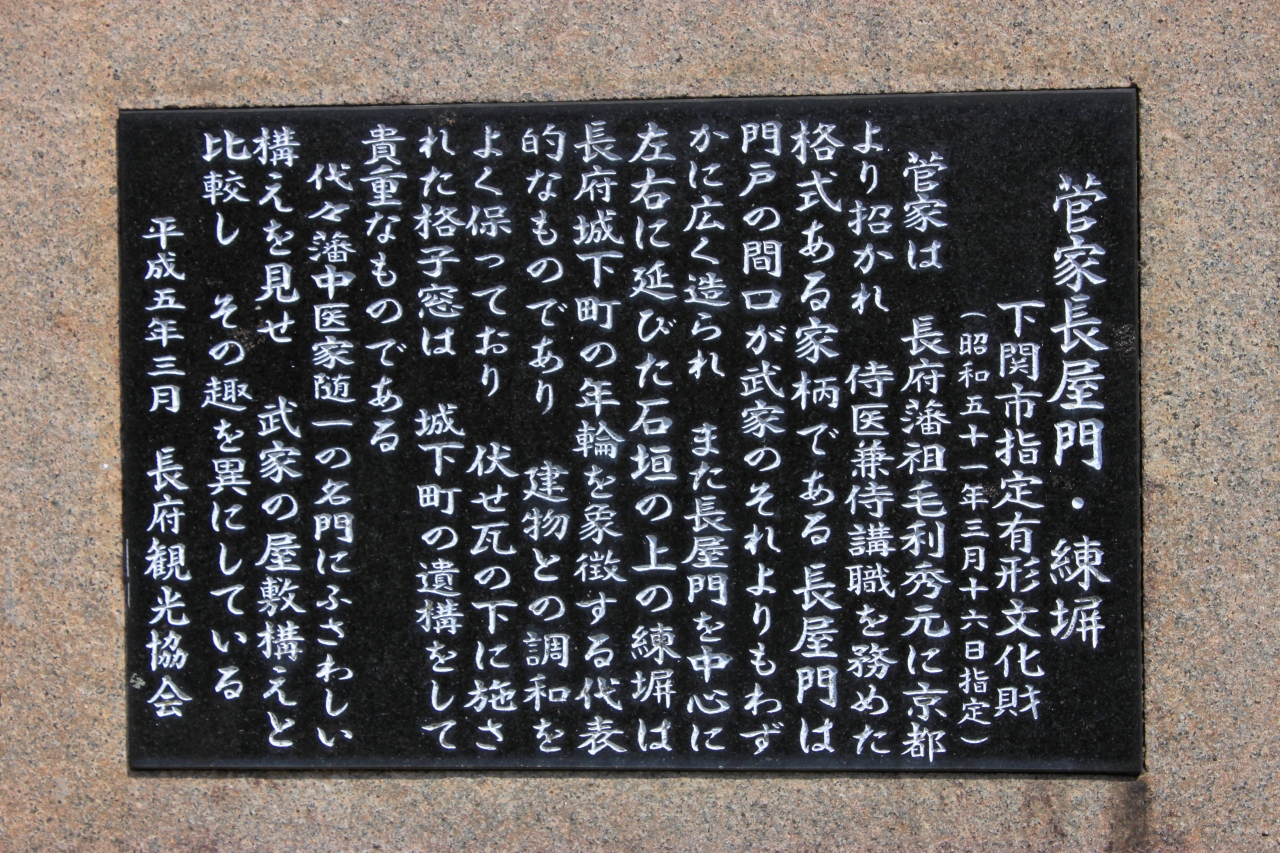 菅家長屋門・練塀
下関市指定有形文化財
(昭和五十一年三月十六日指定)
菅家は　長府藩祖毛利秀元に京都
より招かれ　侍医兼侍講職を務めた
格式ある家柄である　長屋門は
門戸の間口が武家のそれよりもわず
かに広く造られ　また長屋門を中心に
左右に延びた石垣の上の練塀は
長府城下町の年輪を象徴する代表
的なものであり　建物との調和を
よく保っており　伏せ瓦の下に施さ
れた格子窓は　城下町の遺構をして
貴重なものである
代々藩中医家随一の名門にふさわしい
構えを見せ　武家の屋敷構えと
比較し　その趣を異にしている
平成五年三月　長府観光協会